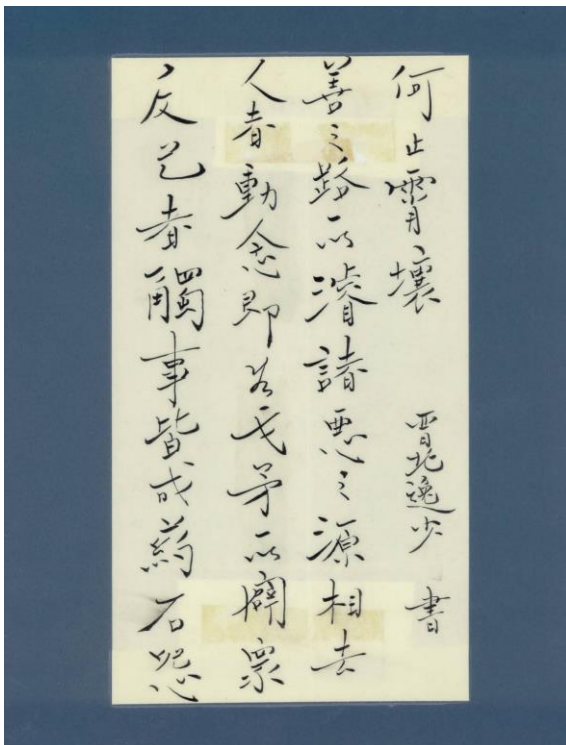 反己者觸事皆成葯石怨
人者動念即戈矛以闢眾
善之路以濬諸惡之源相去
何止霄壤
晋北逸少 書